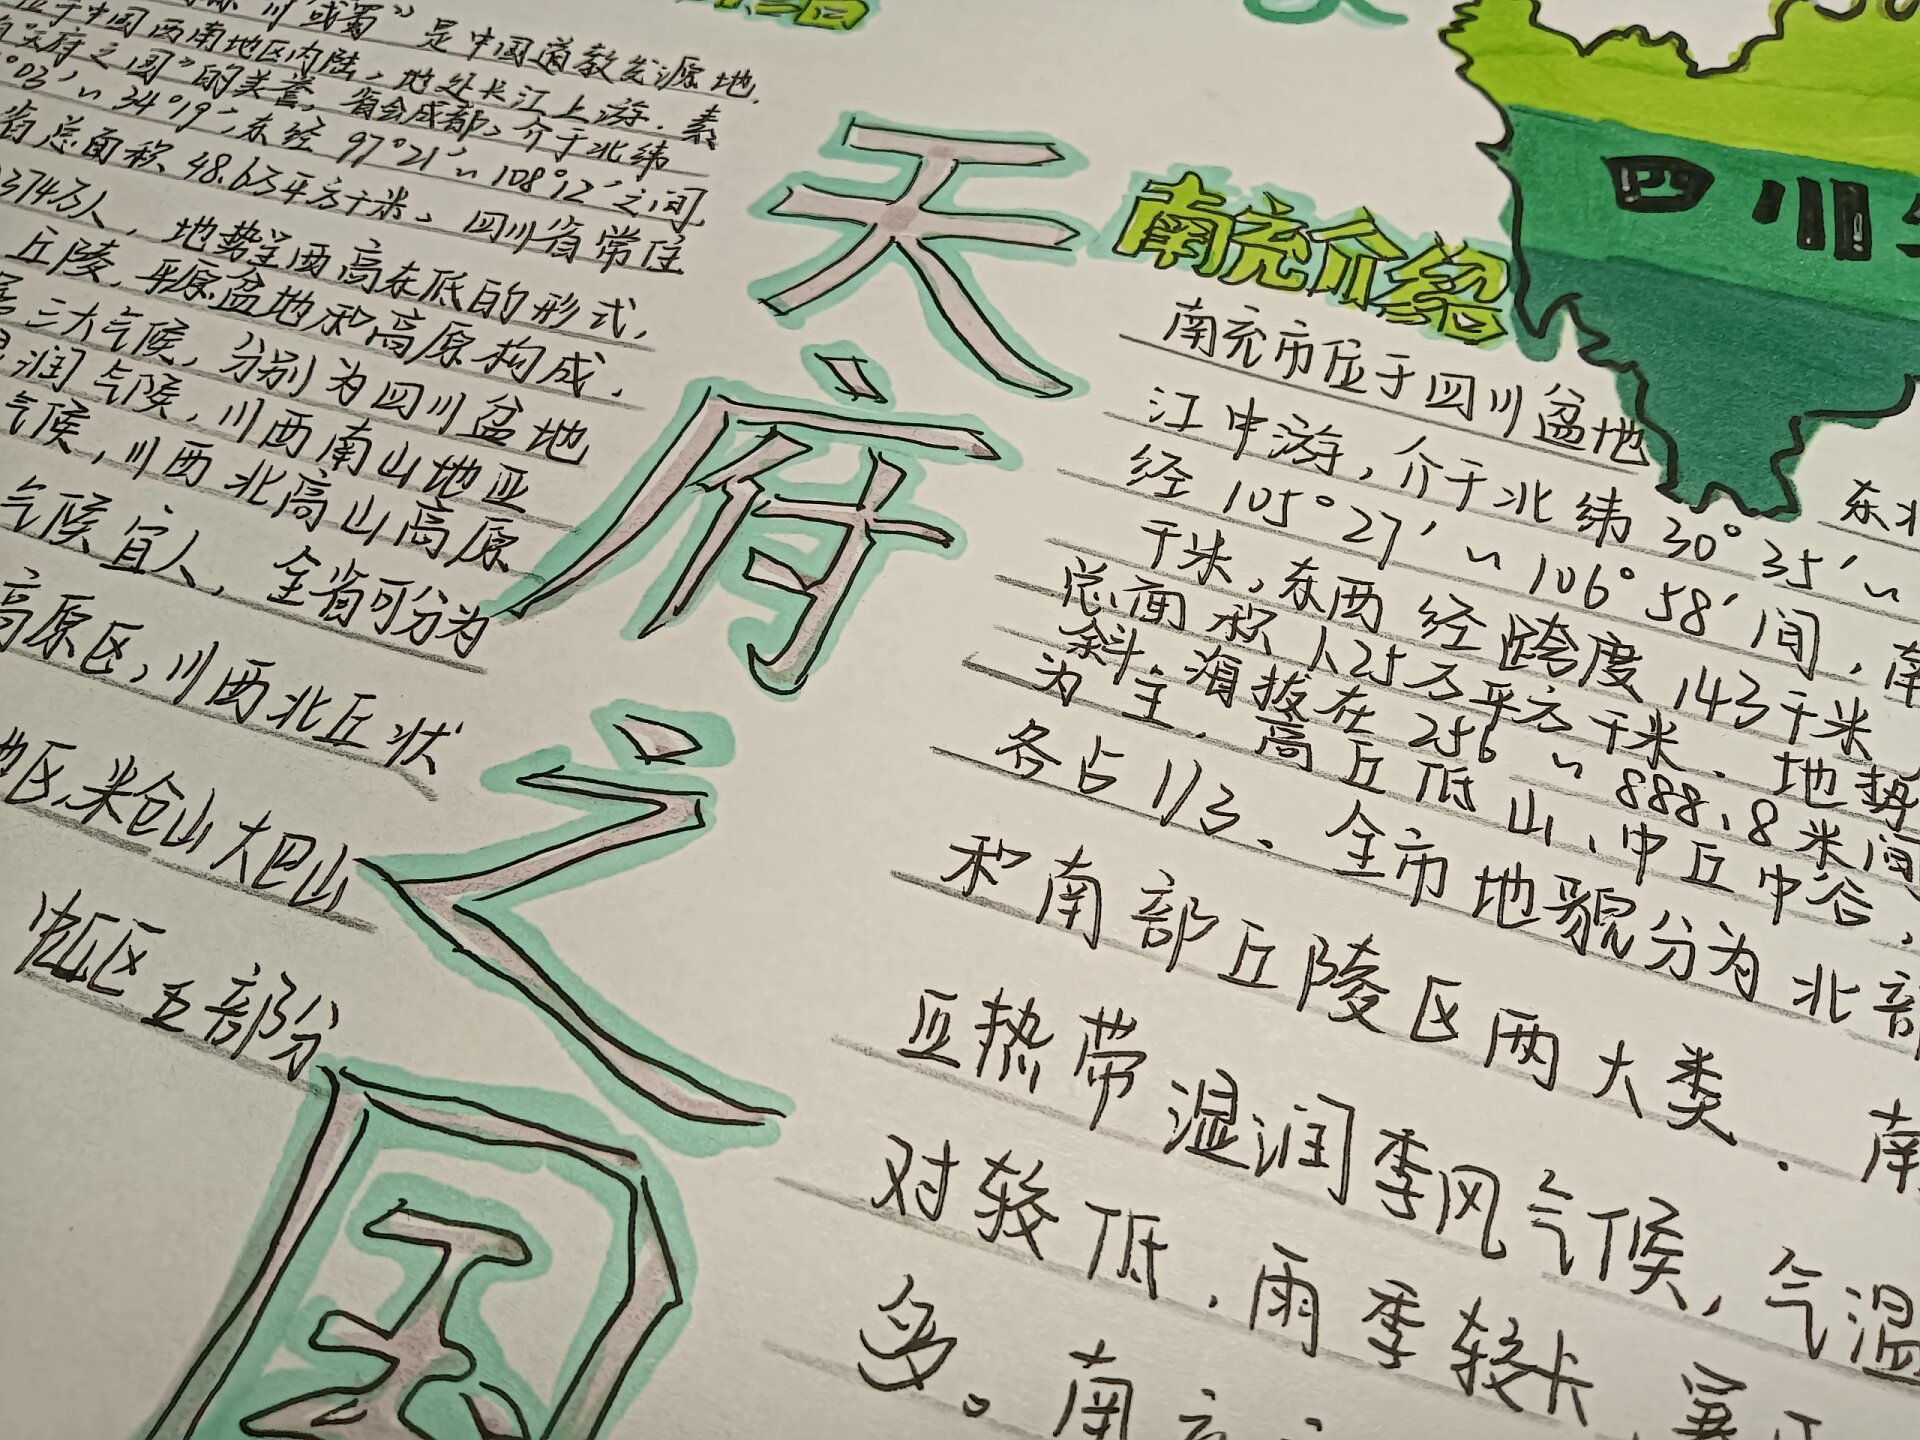 川或蜀”是中国道教发源地.
位于中国西南地区内陆,地处长江上游.素
天府之国”的美誉,省会成都,介于北纬
°03′~34°19′,东经97°21′~108°12′之间,
省总面积48.6万平方千米、四川省常住
374万人,地势呈西高东低的形式,
丘陵,平原盆地和高原构成.
三大气候,分别为四川盆地
润气候,川西南山地亚
气候,川西北高山高原
气候宜人,全省可分为
高原区,川西北丘状
地区,米仓山大巴山
区五部份
天府之国
四川
南充介绍
南充市位于四川盆地
东北
江中游,介于北纬30°35′~
经105°27′~106°58′间,南
千米,东西经跨度143千米
总面积1.25万平方千米.地势
斜.海拔在256~888.8米间
为主.高丘低山、中丘中谷、
各占1/3.全市地貌分为北部
和南部丘陵区两大类.南
亚热带湿润季风气候,气温
对较低,雨季较长
多。南充